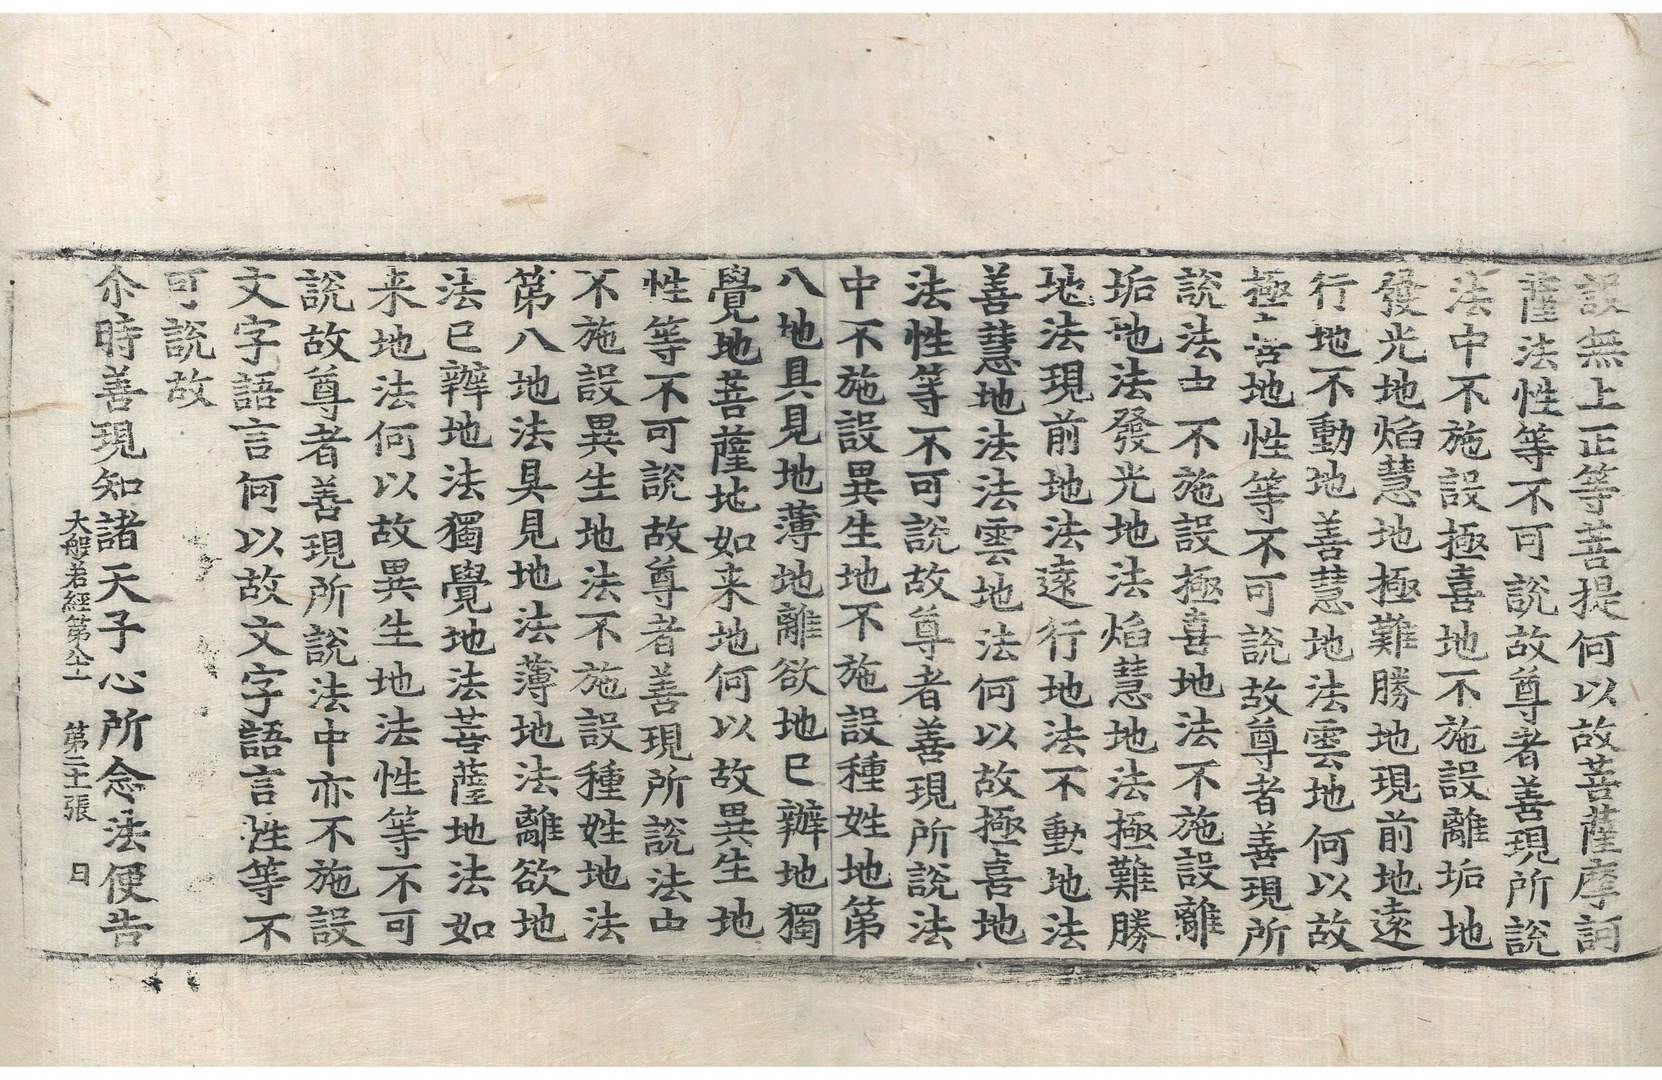 設無上正等菩提何以故菩薩摩訶
薩法性等不可說故尊者善現所說
法中不施設極喜地不施設離垢地
發光地焰慧地極難勝地現前地遠
行地不動地善慧地法雲地何以故
極喜地性等不可說故尊者善現所
說法中不施設極喜地法不施設離
垢地法發光地法焰慧地法極難勝
地法現前地法遠行地法不動地法
善慧地法法雲地法何以故極喜地
法性等不可說故尊者善現所說法
中不施設異生地不施設種姓地第
八地具見地薄地離欲地已辦地獨
覺地菩薩地如来地何以故異生地
性等不可說故尊者善現所說法中
不施設異生地法不施設種姓地法
第八地法具見地法薄地法離欲地
法已辦地法獨覺地法菩薩地法如
来地法何以故異生地法性等不可
說故尊者善現所說法中亦不施設
文字語言何以故文字語言性等不
可說故
尒時善現知諸天子心所念法便告
大般若經第 第二 張 日